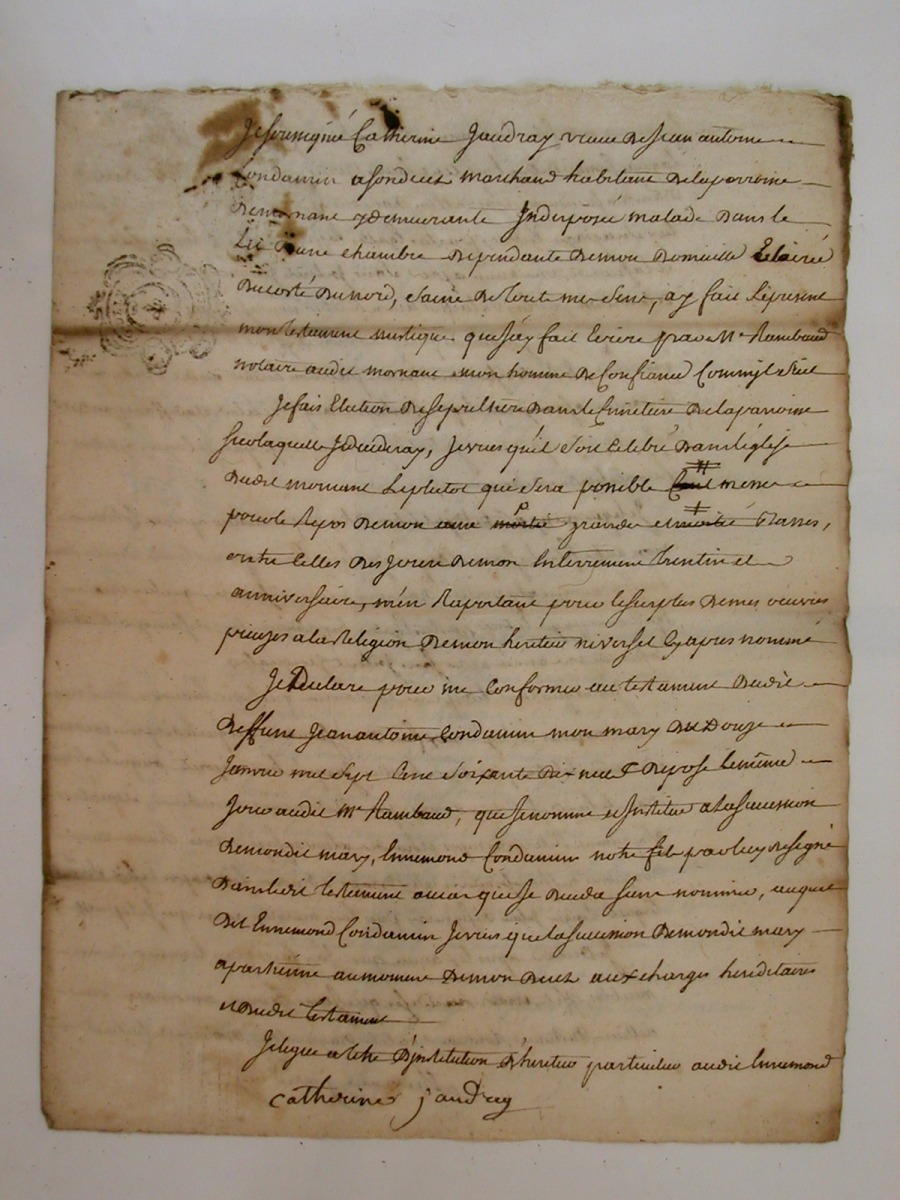 Je soussigné Catherine Jaudray veuve de Jean antoine
Condamin a son deces marchand habitant de la parroisse
de mornant y demeurante Indisposée malade dans le
Lit d'une chambre dependante de mon domicille Eclairée
du costé du nord, saine de tout mes sens, ay fait le present
mon testament mistique que j'ay fait Ecrire par Me Rambaud
notaire audit mornant mon homme de Confiance Comme s'ensuit
Je fais Election de sepulture dans le Cimetiere de la parroisse
sur laquelle Je decederay, Je veus qu'il soit Celebré dans l'églize
dudit mornant le plutot que sera possible Cent messes
pour le Repos de mon ame moitié grandes et moitié Basses,
outre Celles des jours de mon Enterrement trentin et
anniversaire, m'en Raportant pour le surplus de mes oeuvres
pieuzes a la Religion de mon heritier universel Cy apres nommé
Je Declare pour me Conformer au testament dudit
deffunt Jean antoine Condamin mon mary du Douze
Janvier mil sept Cent soixante dix neuf deposé le même
Jour audit Me Rambaud, que je nomme et Institue a la succession
de mondit mary, Ennemond Condamin notre fils par luy designé
dans ledit testament au cas que je deceda sans nommer, auquel
dit Ennemond Condamin Je veus que la succession de mondit mary
apartienne au moment de mon deces aux charges hereditaires
et dudit testament
Je legue a titre d'Institution d'heritier particulier audit Ennemond
Catherine jaudray